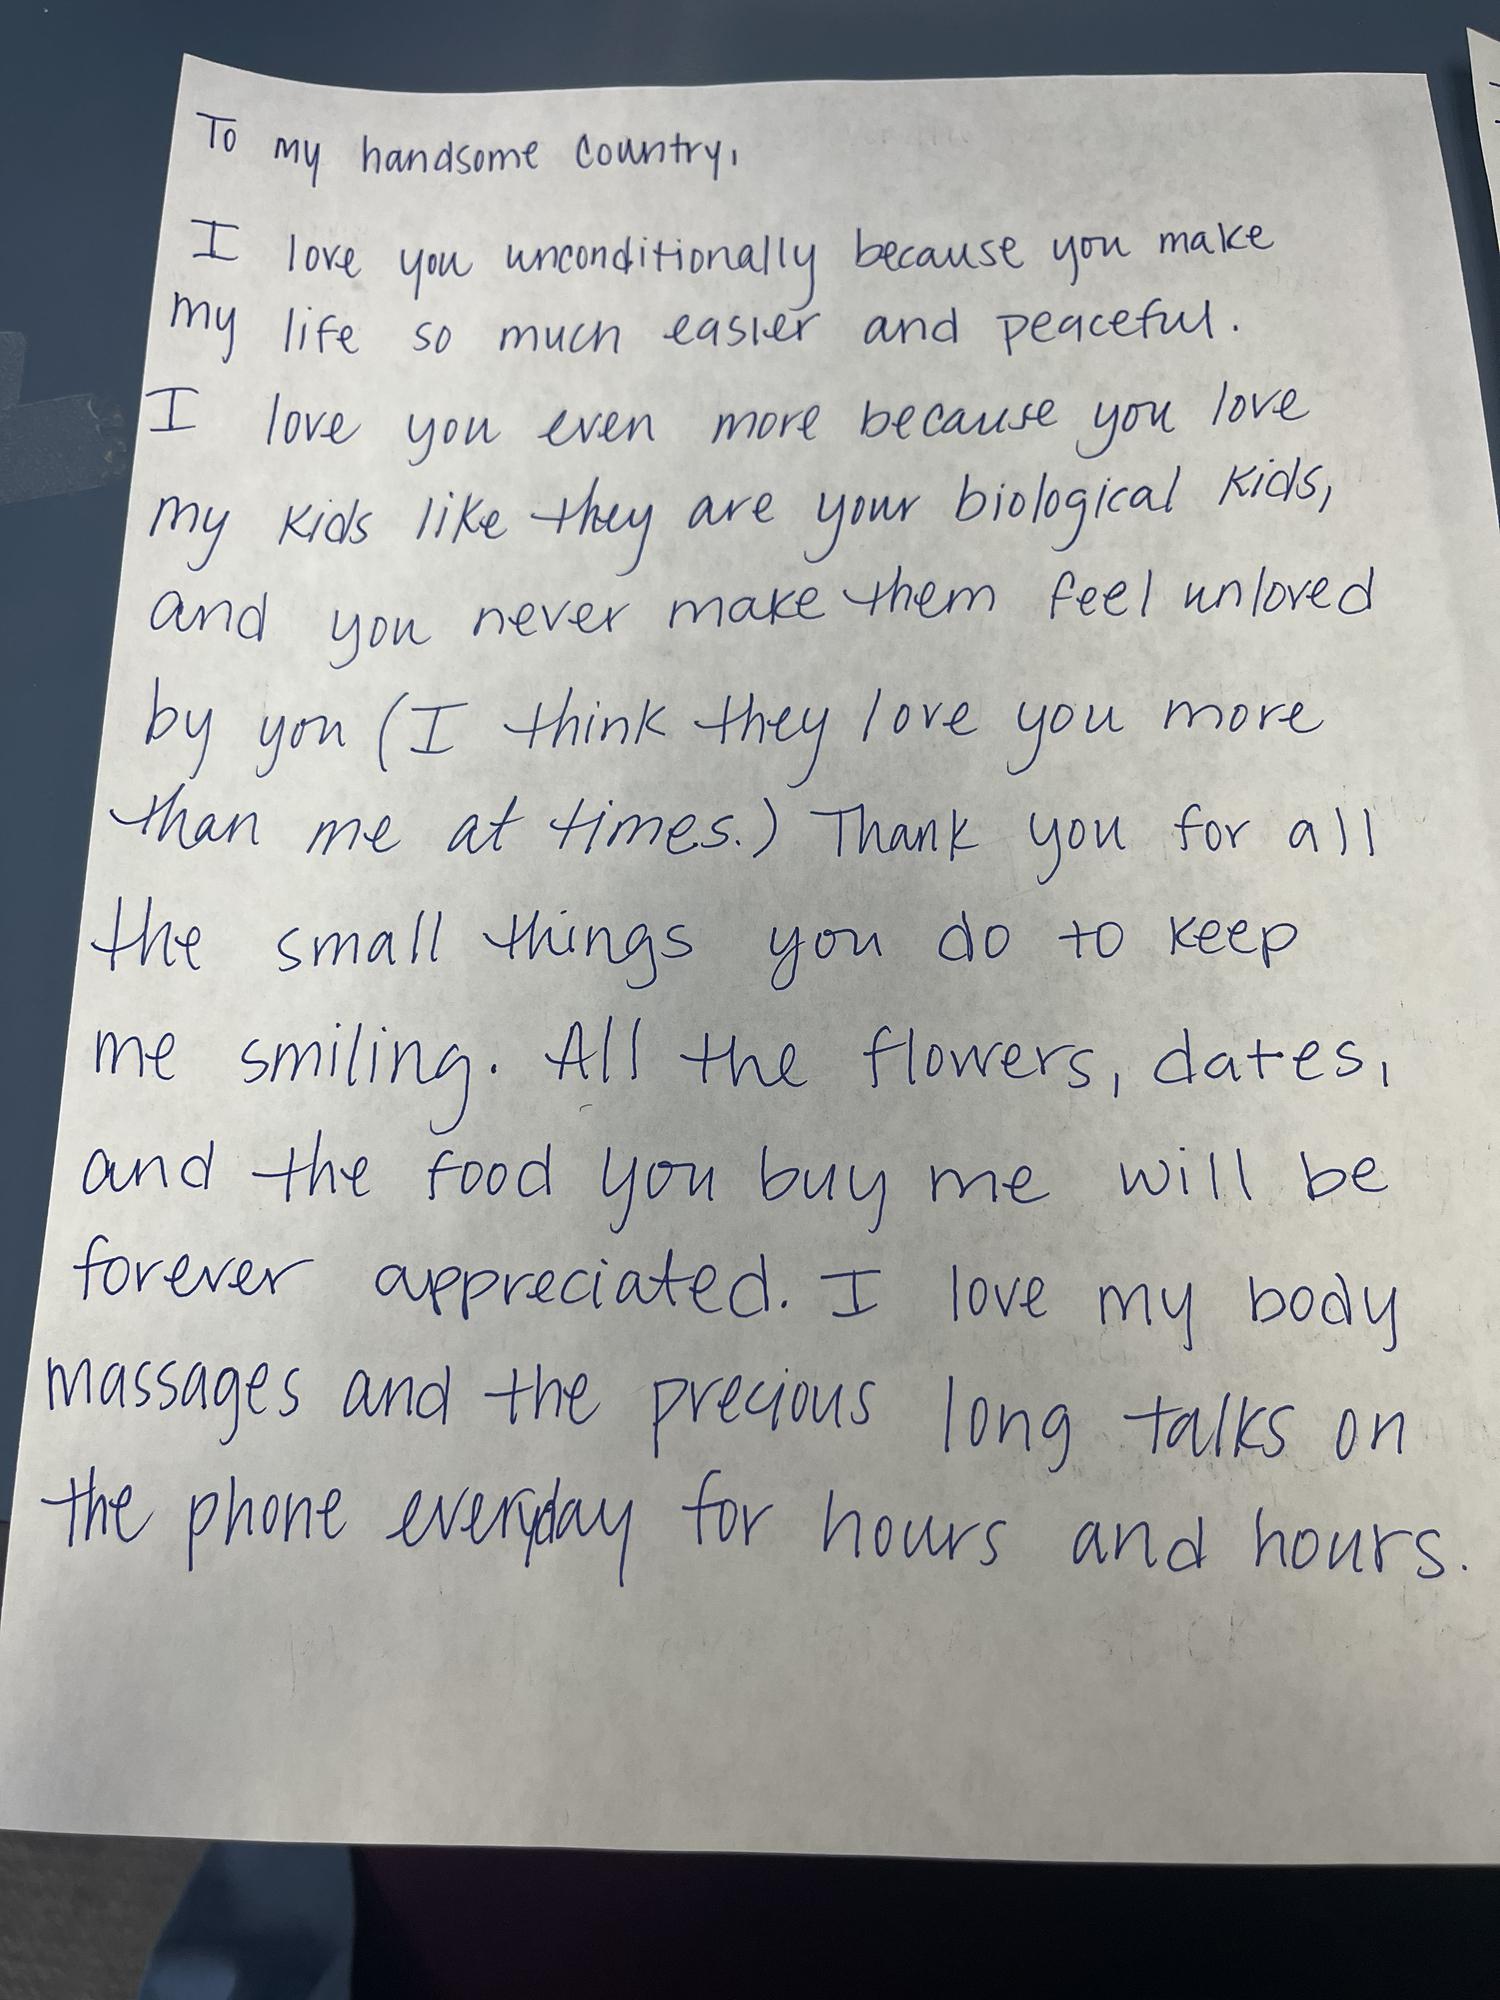 To my handsome country,
I love you unconditionally because you make
my life so much easier and peaceful.
I love you even more because you love
my kids like they are your biological kids,
and you never make them feel unloved
by you (I think they love you more
than me at times.) Thank you for all
the small things you do to keep
me smiling. All the flowers, dates,
and the food you buy me will be
forever appreciated. I love my body
massages and the precious long talks on
the phone everyday for hours and hours.